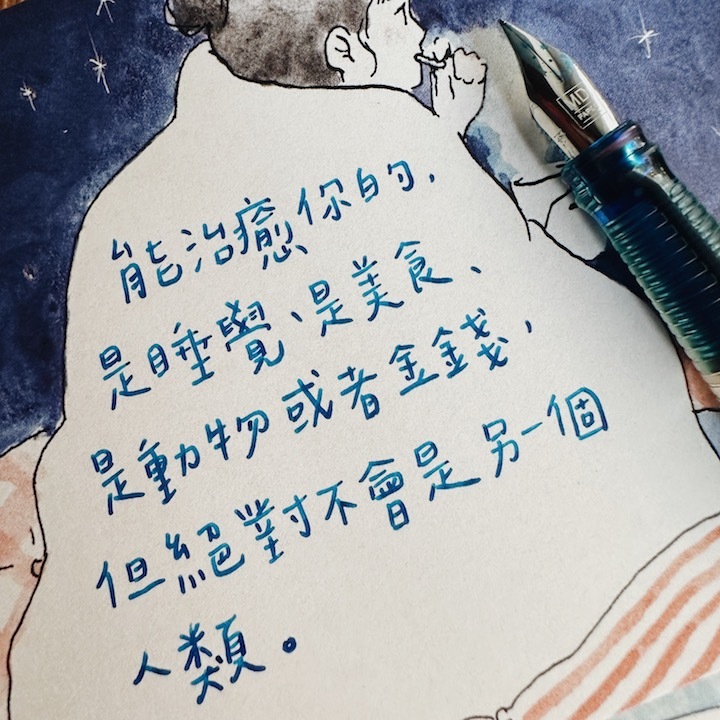 能治癒你的，
是睡覺、是美食、
是動物或者金錢，
但絕對不會是另一個
人類。
MD